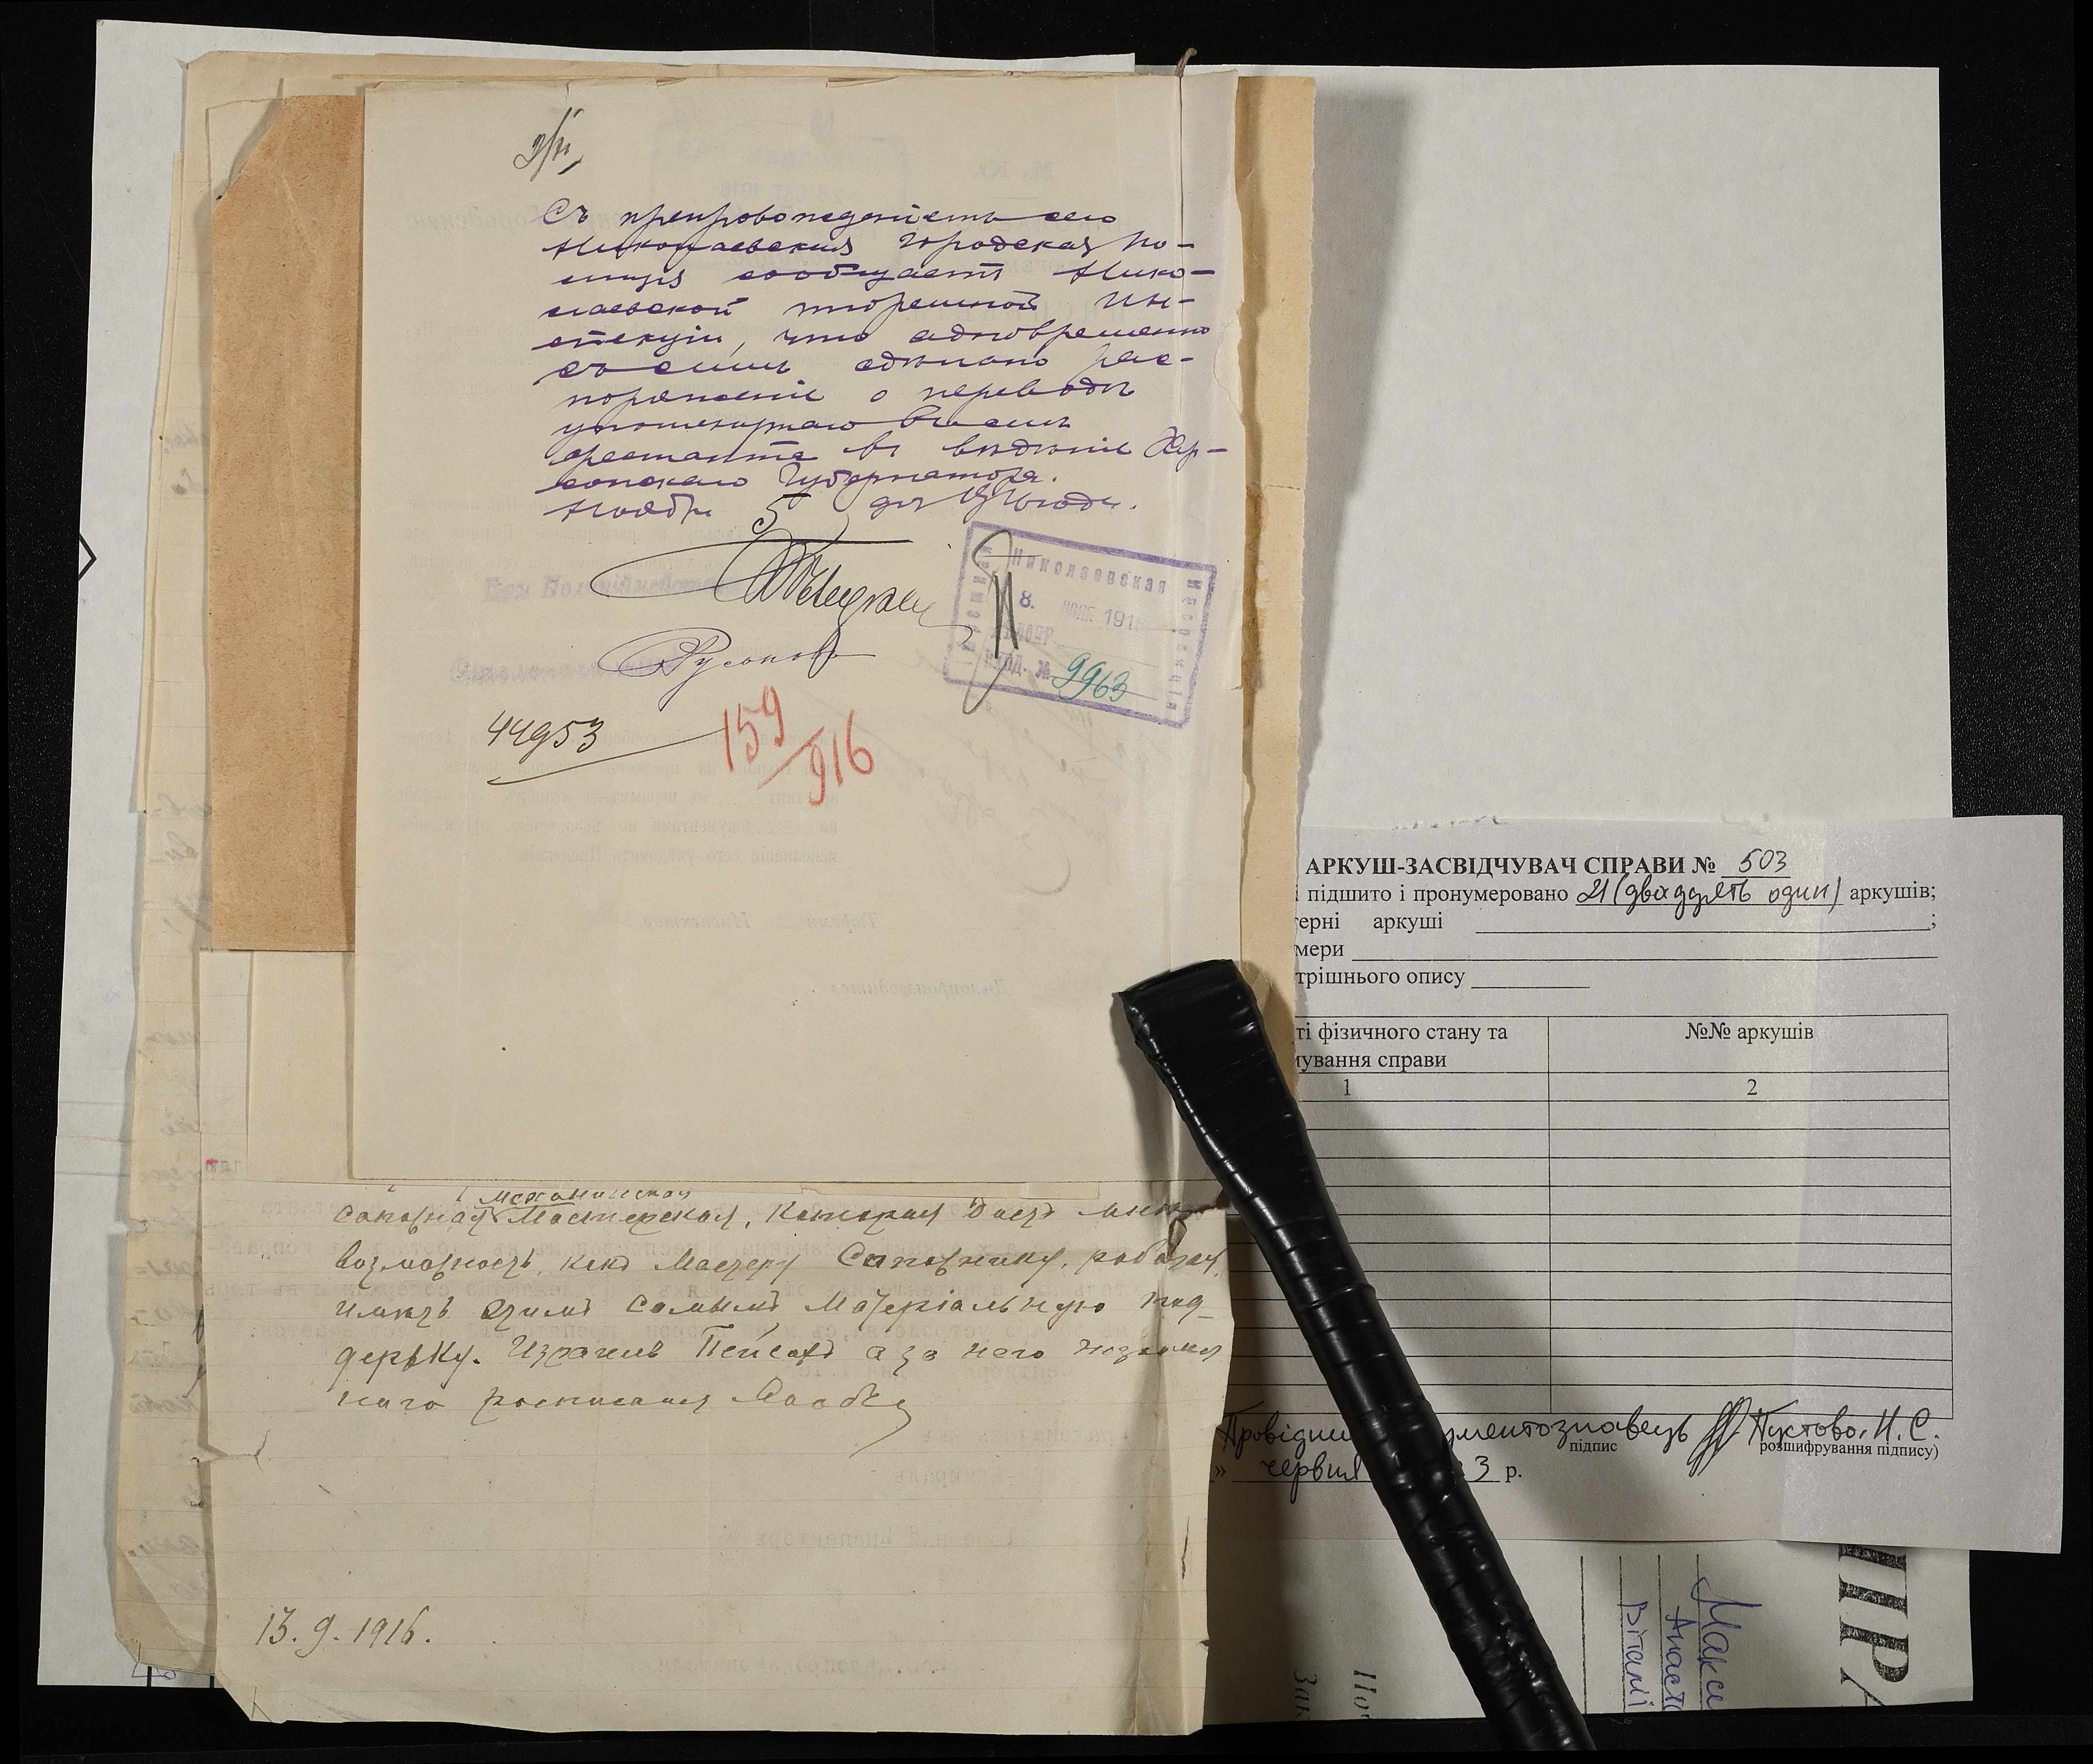 Съ препровожденіемъ сего
Николаевская Городская По-
лиція сообщаетъ Нико-
лаевской тюремной Ин-
спекціи, что одновременно
съ симъ сдѣлано рас-
поряженіе о переводѣ
упомянутаго въ семъ
арестанта въ вѣдѣніе Хер-
сонскаго Губернатора.
Ноября 5 дня 1916 года.
Николаевская
8. НОЯБ. 191
ВХОД. №
9963
44953
159
916
механическая
сапожная мастерская, которая даетъ мнѣ
возможность, какъ мастеру сапожнику, работая,
имѣть этимъ самымъ матеріальную под-
держку. Израиль Пейсахъ а за него неграмот
наго росписался
13. 9. 1916.
АРКУШ-ЗАСВІДЧУВАЧ СПРАВИ № 503
підшито і пронумеровано 21 (двадцять один) аркушів;
терні аркуші ;
мери
трішнього опису
ті фізичного стану та
мування справи
№№ аркушів
1
2
Провідни ументознавець Пустова. Н. С.
підпис
розшифрування підпису)
» червня 3 р.
Макси
Анаста
Віталі